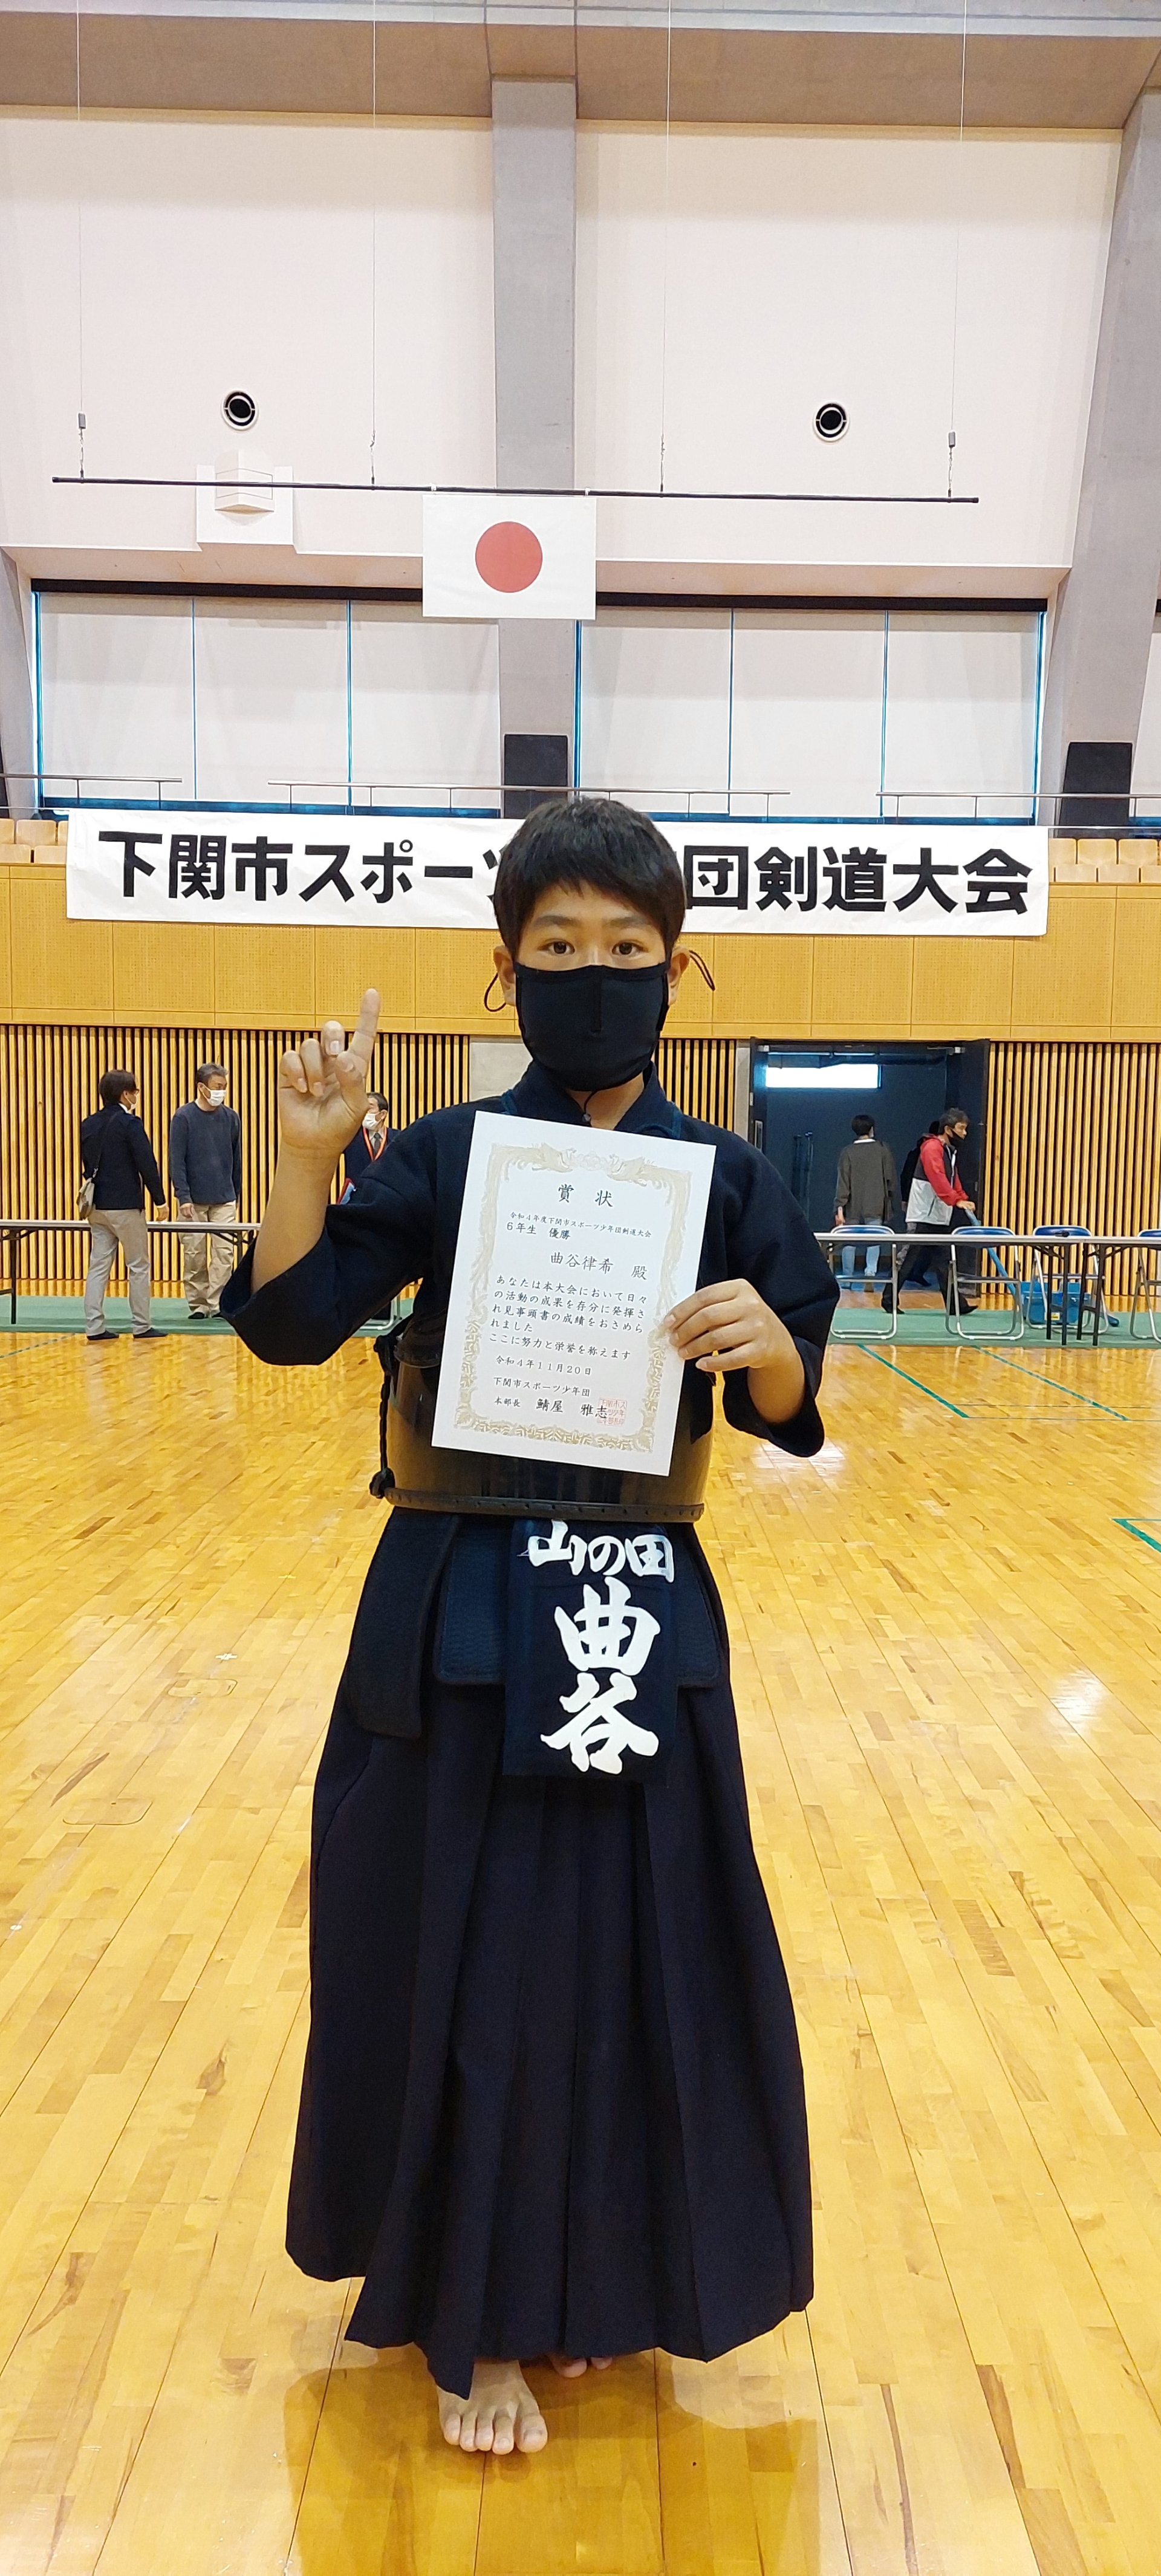 下関市スポーツ 団剣道大会
賞 状
令和4年度下関市スポーツ少年団剣道大会
6年生 優勝
曲谷律希 殿
あなたは本大会において日々
の活動の成果を存分に発揮さ
れ見事頭書の成績をおさめら
れました
ここに努力と栄誉を称えます
令和4年11月20日
下関市スポーツ少年団
本部長 鯖屋 雅志
山の田
曲谷